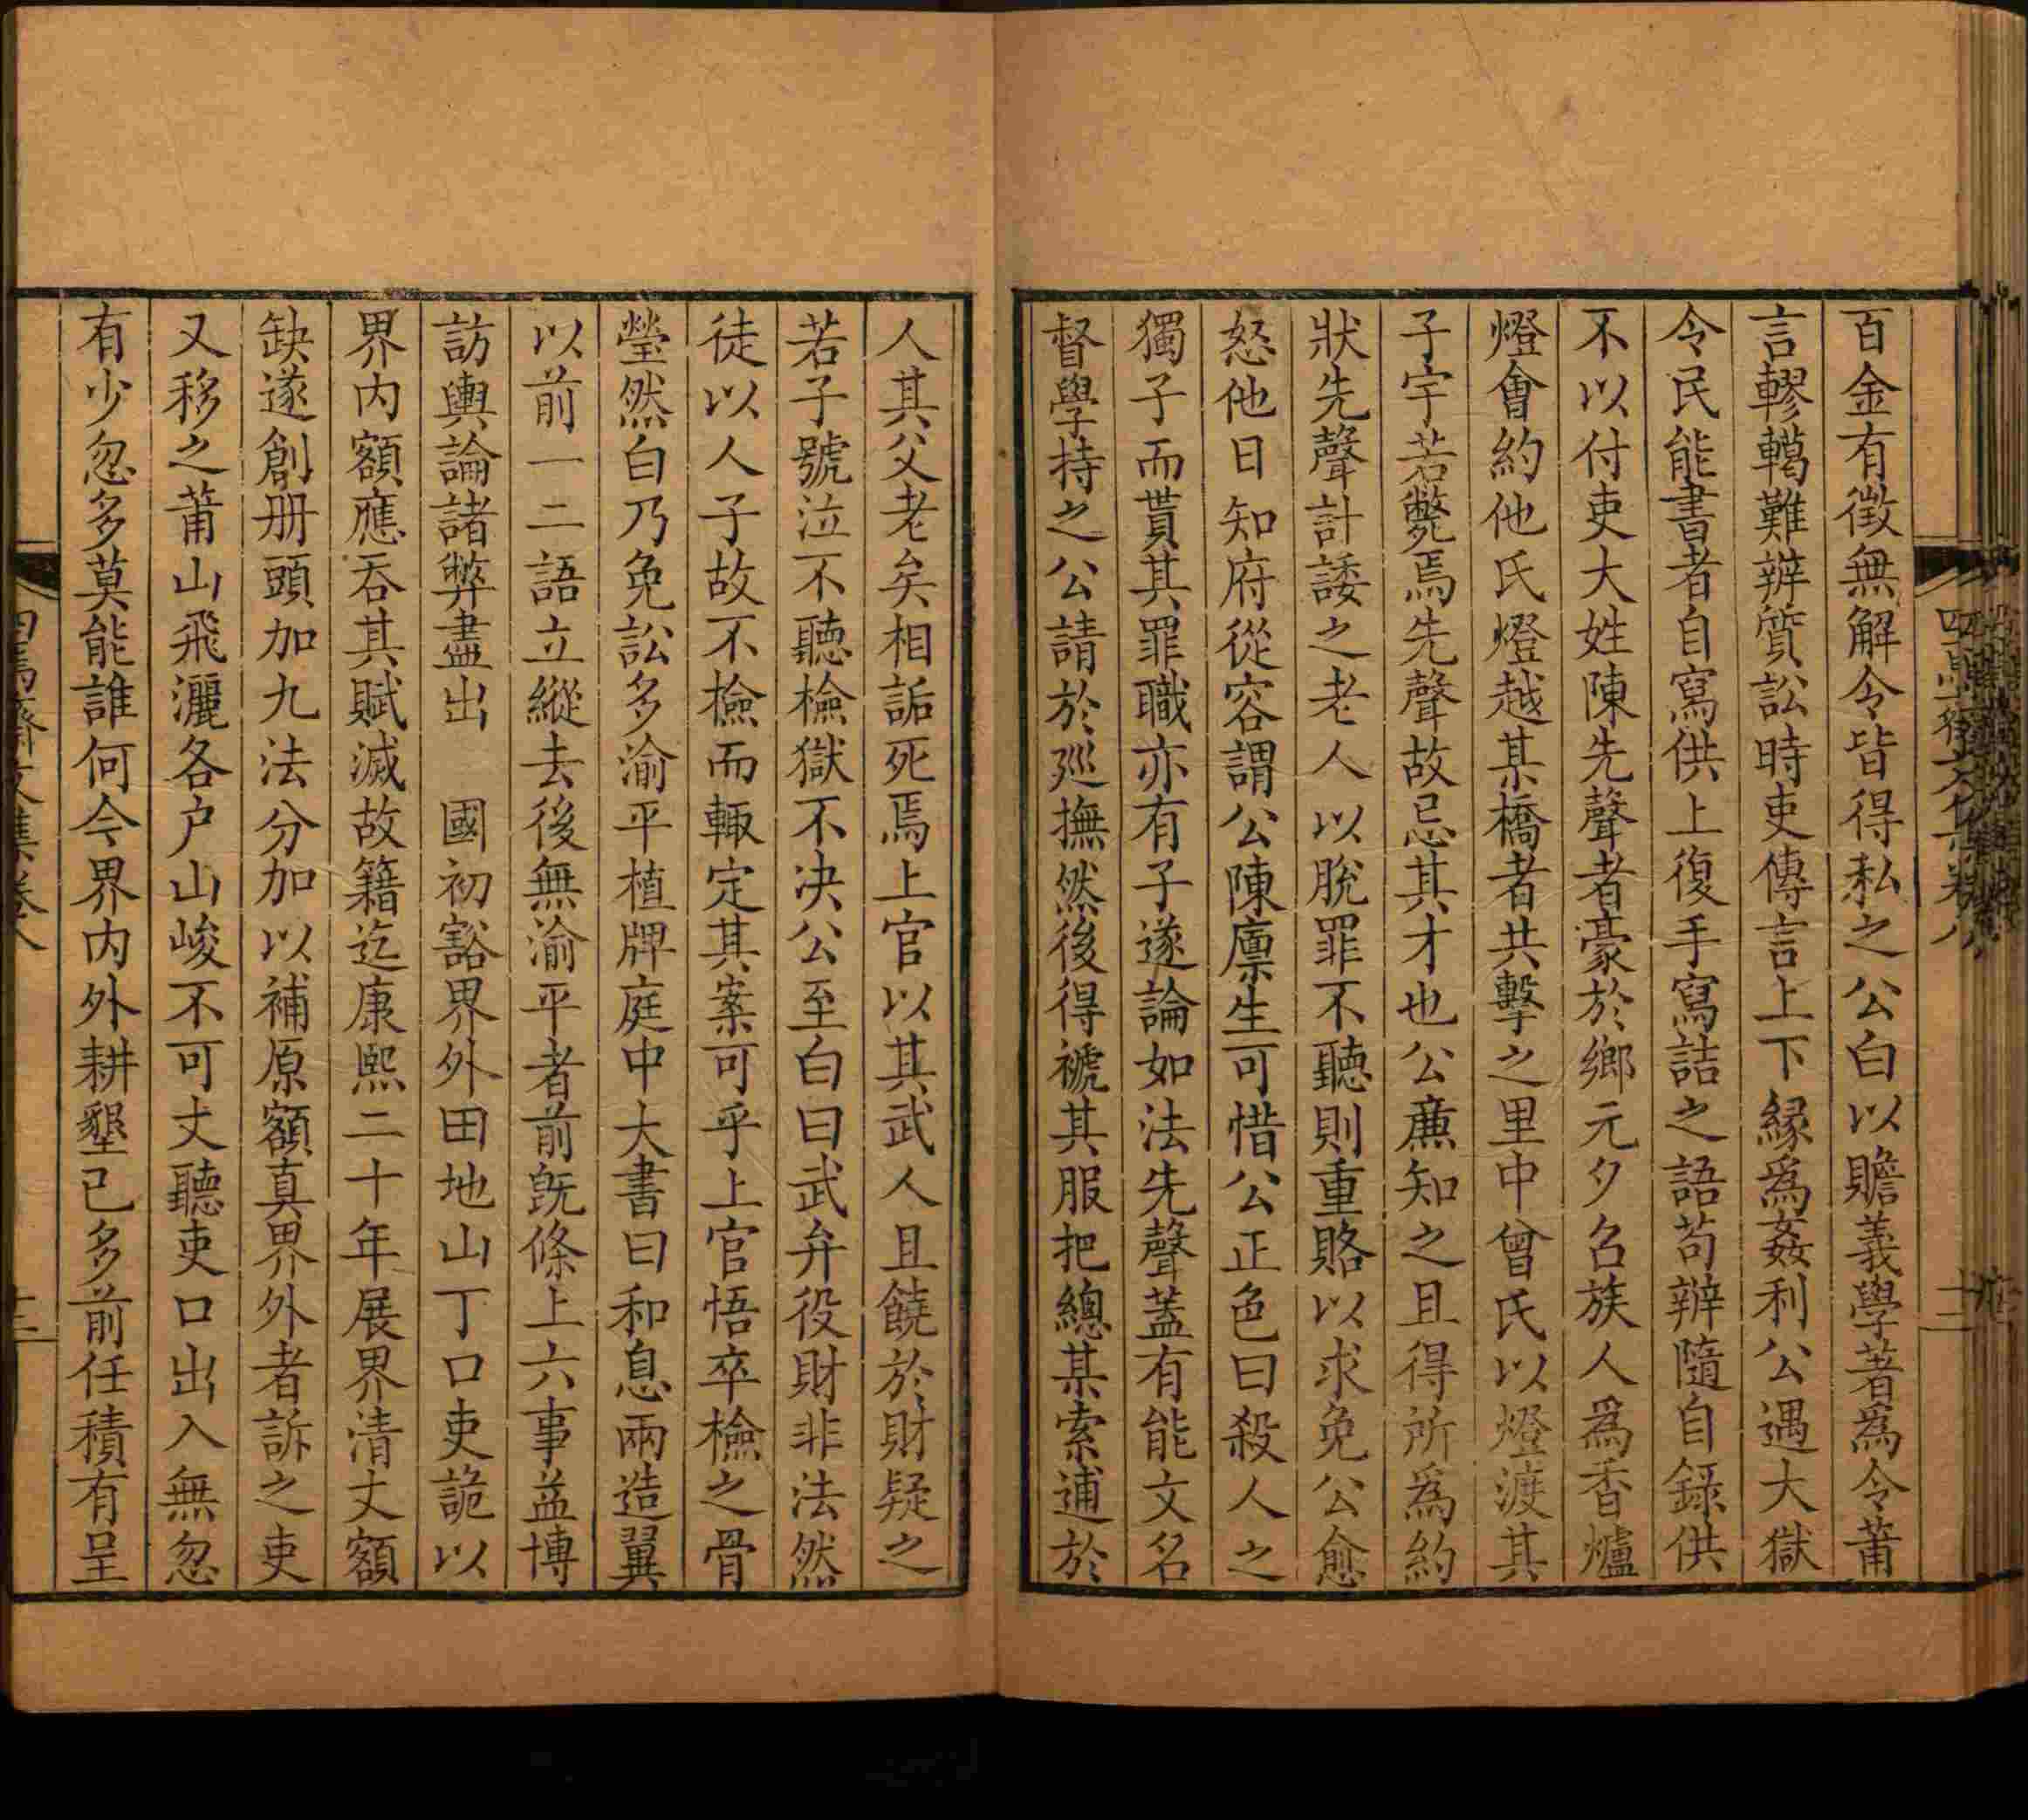 百金有徵無解令皆得私之公白以贍義學著爲令莆
言轇轕難辨質訟時吏傳言上下緣爲姦利公遇大獄
令民能書者自寫供上復手寫詰之語苟辨隨自錄供
不以付吏大姓陳先聲者豪於鄉元夕召族人爲香爐
燈會約他氏燈越某橋者共擊之里中曾氏以燈渡其
子宇若斃焉先聲故忌其才也公廉知之且得所爲約
狀先聲計諉之老人以脫罪不聽則重賂以求免公愈
怒他日知府從容謂公陳廩生可惜公正色曰殺人之
獨子而貰其罪職亦有子遂論如法先聲蓋有能文名
督學持之公請於廵撫然後得褫其服把總某索逋於
人其父老矣相詬死焉上官以其武人且饒於財疑之
若子號泣不聽檢獄不決公至白曰武弁役財非法然
徒以人子故不檢而輙定其案可乎上官悟卒檢之骨
瑩然白乃免訟多渝平植牌庭中大書曰和息兩造翼
以前一二語立縱去後無渝平者前旣條上六事益博
訪輿論諸弊盡出　國初豁界外田地山丁口吏詭以
界内額應吞其賦減故籍迄康熙二十年展界清丈額
缺遂創册頭加九法分加以補原額真界外者訴之吏
又移之莆山飛灑各户山峻不可丈聽吏口出入無忽
有少忽多莫能誰何今界内外耕墾已多前任積有呈